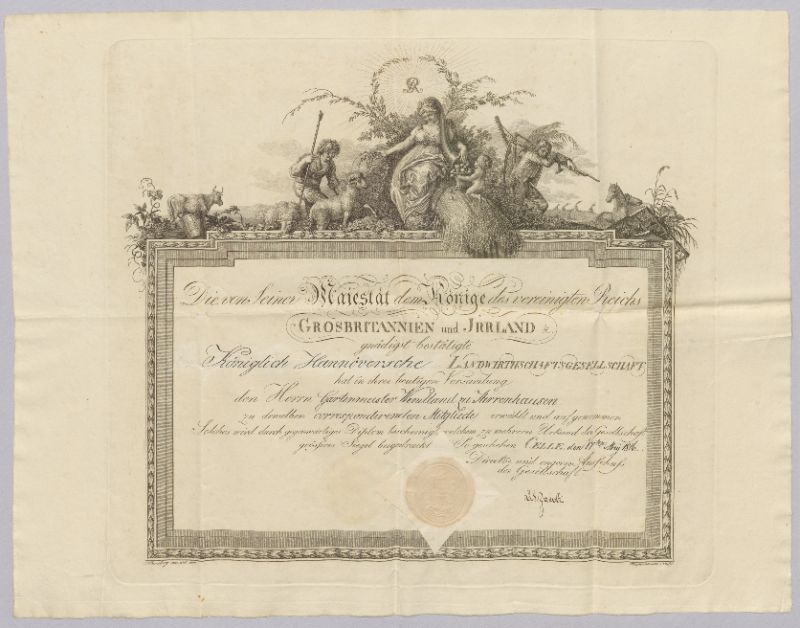 GR
Die von Seiner Majestät dem Könige des vereinigten Reichs
GROSBRITANNIEN und JRRLAND &
gnädigst bestätigte
Königlich Hannöversche LANDWIRTHSCHAFTSGESELLSCHAFT
hat in ihrer heutigen Versamlung
den Herrn Gartenmeister Wendland zu Herrenhausen
zu demselben correspondirenden Mitgliede erwählt und aufgenommen
Solches wird durch gegenwärtiges Diplom bescheinigt, welchem zu mehrerer Urkund der Gesellschaft
grösseres Siegel beigedruckt. So geschehen CELLE, den 17ten May
Director und engerer Ausschuß
der Gesellschaft